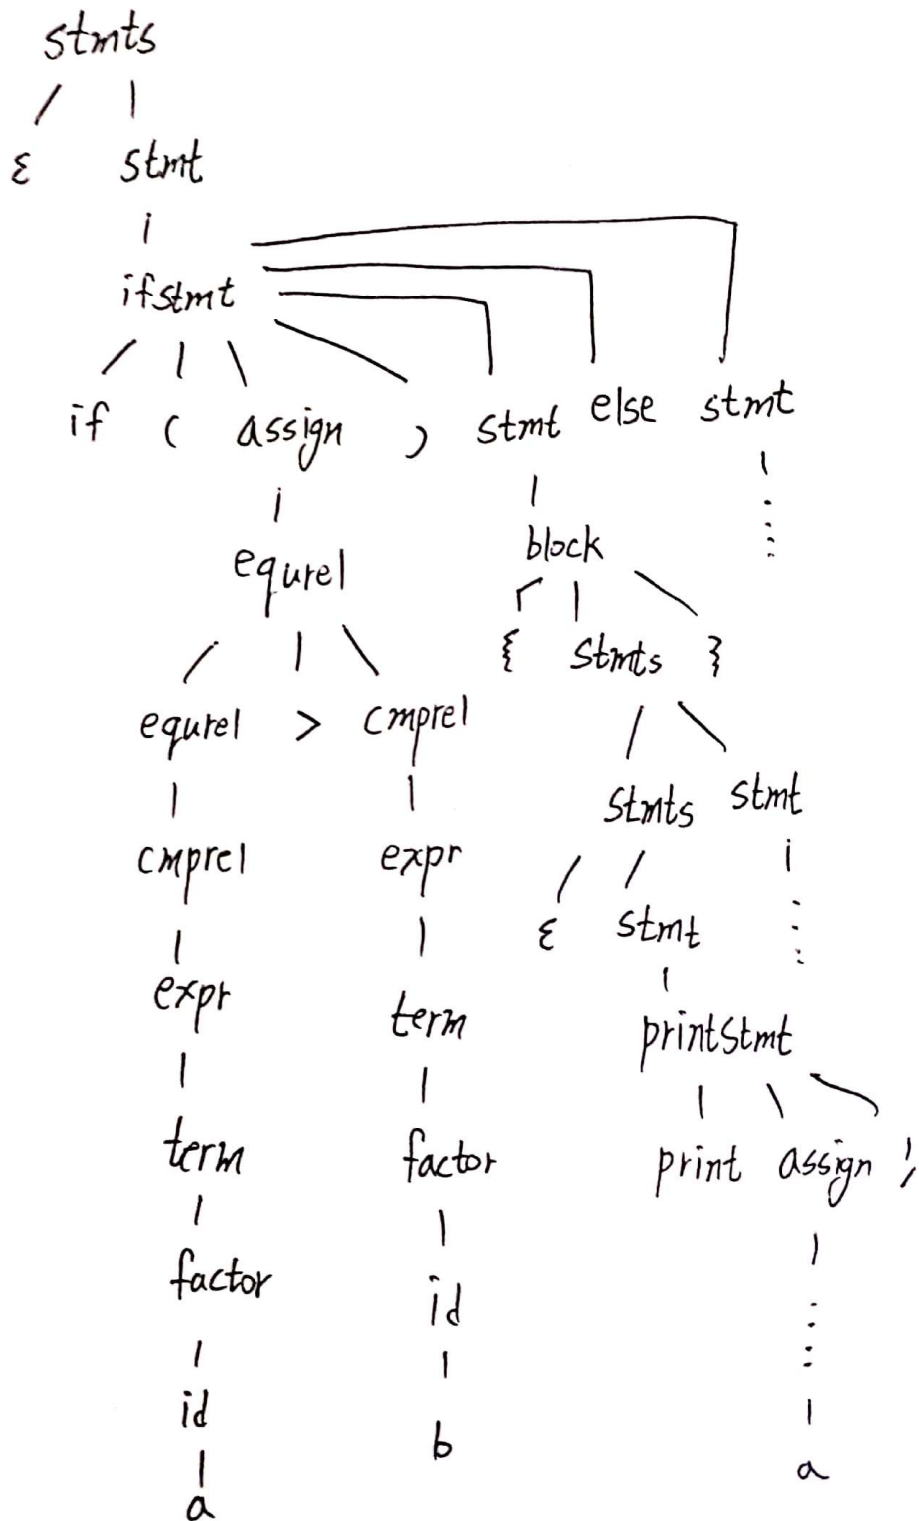 stmts
ε stmt
ifstmt
if ( assign ) stmt else stmt
equrel block
{ stmts }
equrel > cmprel
stmts stmt
cmprel expr
ε stmt
expr term printstmt
term factor print assign ;
factor id
id b a
a